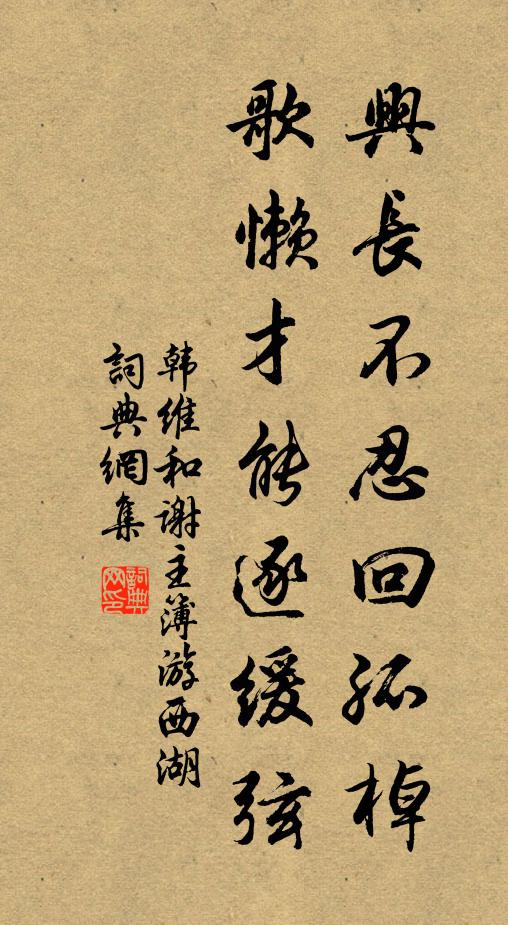 興長不忍回孤棹
歌懒才能逐缓弦
韩维和谢主簿游西湖
詞典網集
詞典网印